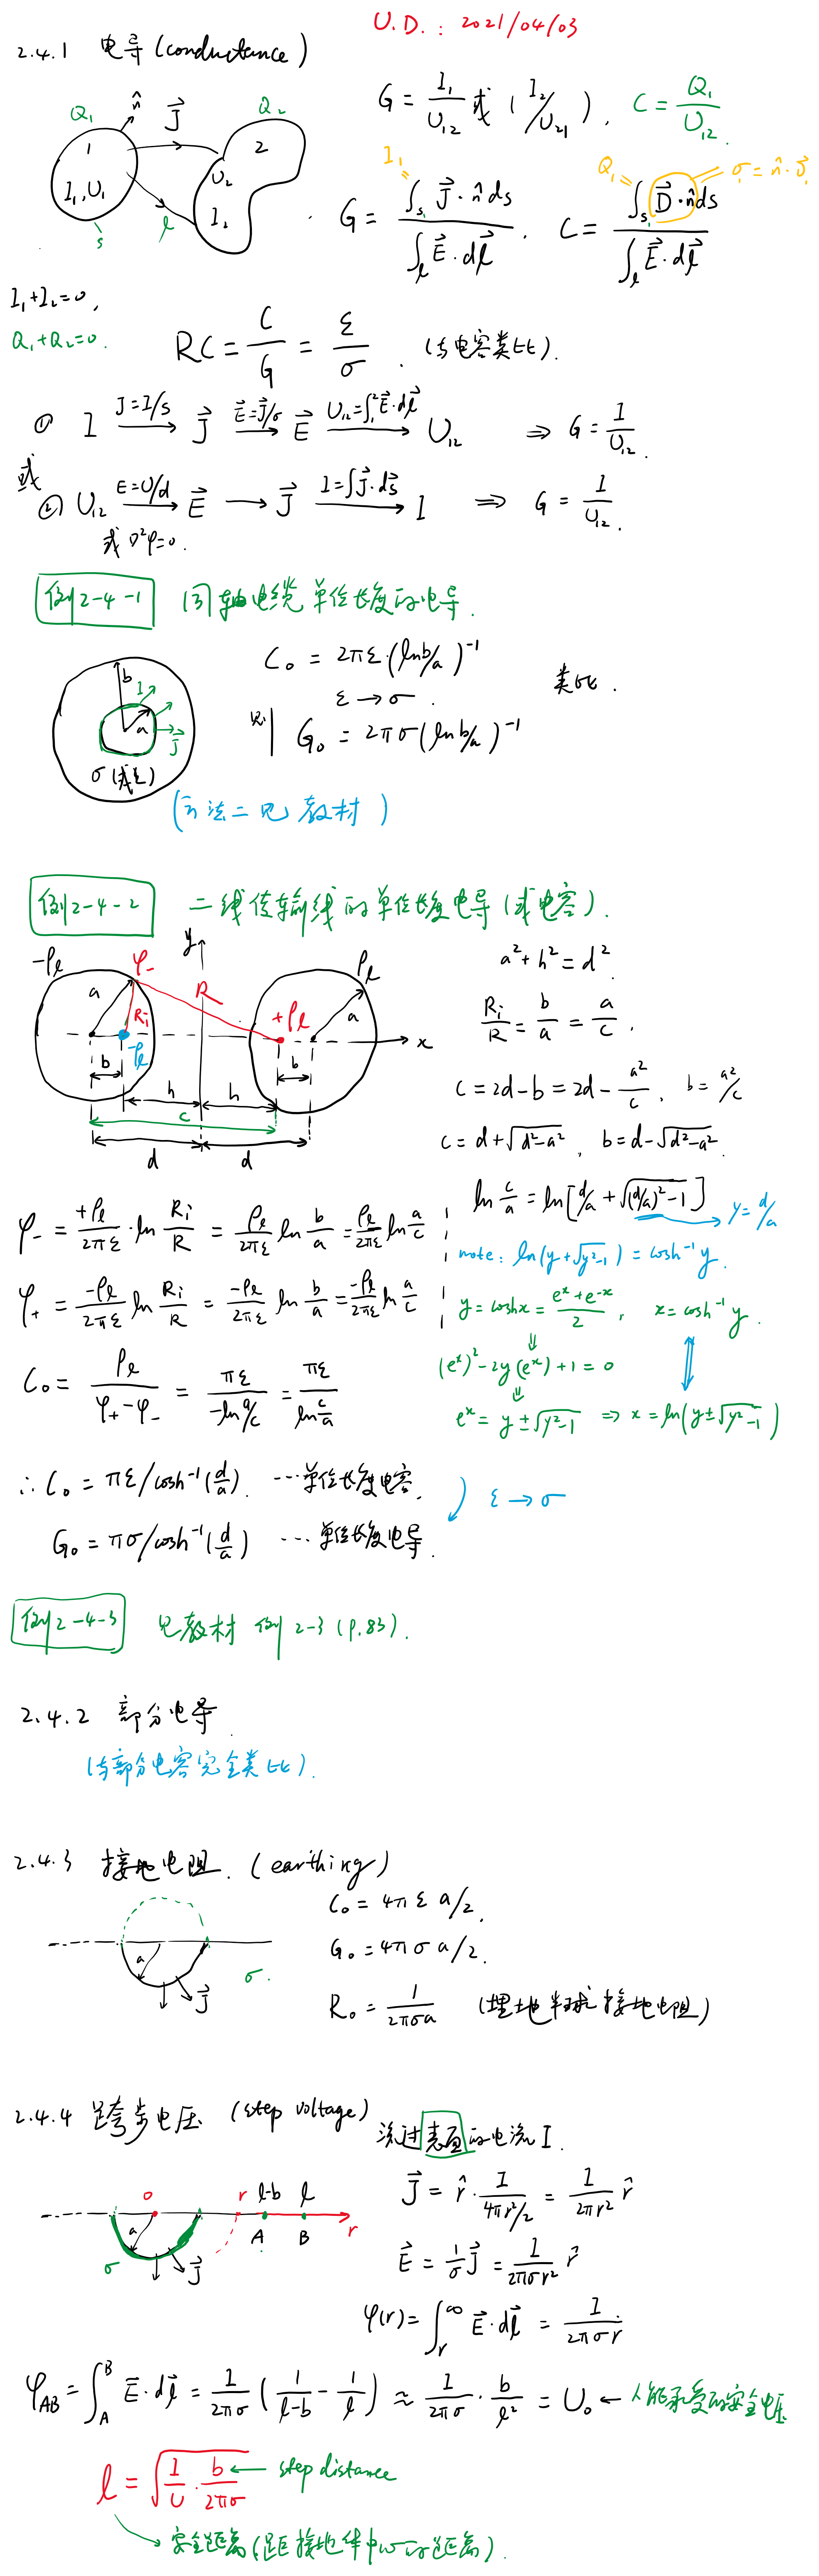 U.D.: 2021/04/03
2.4.1 电导 (conductance)
Q₁ n̂ J⃗ Q₂
1 2
I₁, U₁ U₂
I₂
s l
G = I₁/U₁₂ 或 (I₂/U₂₁), C = Q₁/U₁₂
I₁ = Q₁ = σ = n̂·D⃗
G = ∫_S₁ J⃗·n̂ds / ∫_l E⃗·dl⃗ . C = ∫_S₁ D⃗·n̂ds / ∫_l E⃗·dl⃗
I₁+I₂=0,
Q₁+Q₂=0.
RC = C/G = ε/σ . (与电容类比).
① I —J=I/S→ J⃗ —E⃗=J⃗/σ→ E⃗ —U₁₂=∫₁²E⃗·dl⃗→ U₁₂ ⇒ G = I/U₁₂.
或
② U₁₂ —E=U/d→ E⃗ → J⃗ —I=∫J⃗·ds⃗→ I ⇒ G = I/U₁₂.
或 ∇²φ=0.
例2-4-1 同轴电缆单位长度的电导.
b I a J⃗
σ (或ε)
C₀ = 2πε·(ln b/a)⁻¹
ε → σ . 类比.
则 G₀ = 2πσ(ln b/a)⁻¹
(方法二见教材)
例2-4-2 二线传输线的单位长度电导(或电容).
-ρl φ₋ y R ρl
a Ri +ρl a x
-ρl
b h h b
c
d d
a²+h²=d².
Ri/R = b/a = a/c ,
c = 2d-b = 2d - a²/c , b = a²/c
c = d+√(d²-a²) , b = d-√(d²-a²).
φ₋ = +ρl/2πε · ln Ri/R = ρl/2πε ln b/a = ρl/2πε ln a/c
ln c/a = ln[d/a + √((d/a)²-1)] → y = d/a
note: ln(y+√(y²-1)) = cosh⁻¹ y.
φ₊ = -ρl/2πε ln Ri/R = -ρl/2πε ln b/a = -ρl/2πε ln a/c
y = cosh x = (eˣ+e⁻ˣ)/2 , x = cosh⁻¹ y .
⇓
(eˣ)²-2y(eˣ)+1=0
⇓
C₀ = ρl/(φ₊-φ₋) = πε/(-ln a/c) = πε/(ln c/a)
eˣ = y±√(y²-1) ⇒ x = ln(y±√(y²-1))
∴ C₀ = πε/cosh⁻¹(d/a). …单位长度电容.
ε → σ
G₀ = πσ/cosh⁻¹(d/a) …单位长度电导.
例2-4-3 见教材 例2-3 (P.83).
2.4.2 部分电导
(与部分电容完全类比).
2.4.3 接地电阻. (earthing)
a σ. J⃗
C₀ = 4πε a/2.
G₀ = 4πσ a/2.
R₀ = 1/2πσa (埋地半球接地电阻)
2.4.4 跨步电压 (step voltage)
流过表面的电流 I.
o r l-b l
a A B r
σ J⃗
J⃗ = r̂· I/(4πr²/2) = I/2πr² r̂
E⃗ = 1/σ J⃗ = I/2πσr² r̂
φ(r) = ∫_r^∞ E⃗·dl⃗ = I/2πσr
φ_AB = ∫_A^B E⃗·dl⃗ = I/2πσ (1/(l-b) - 1/l) ≈ I/2πσ · b/l² = U₀ ← 人能承受的安全电压
l = √(I/U · b/2πσ) ← step distance
→ 安全距离(距接地体中心的距离).